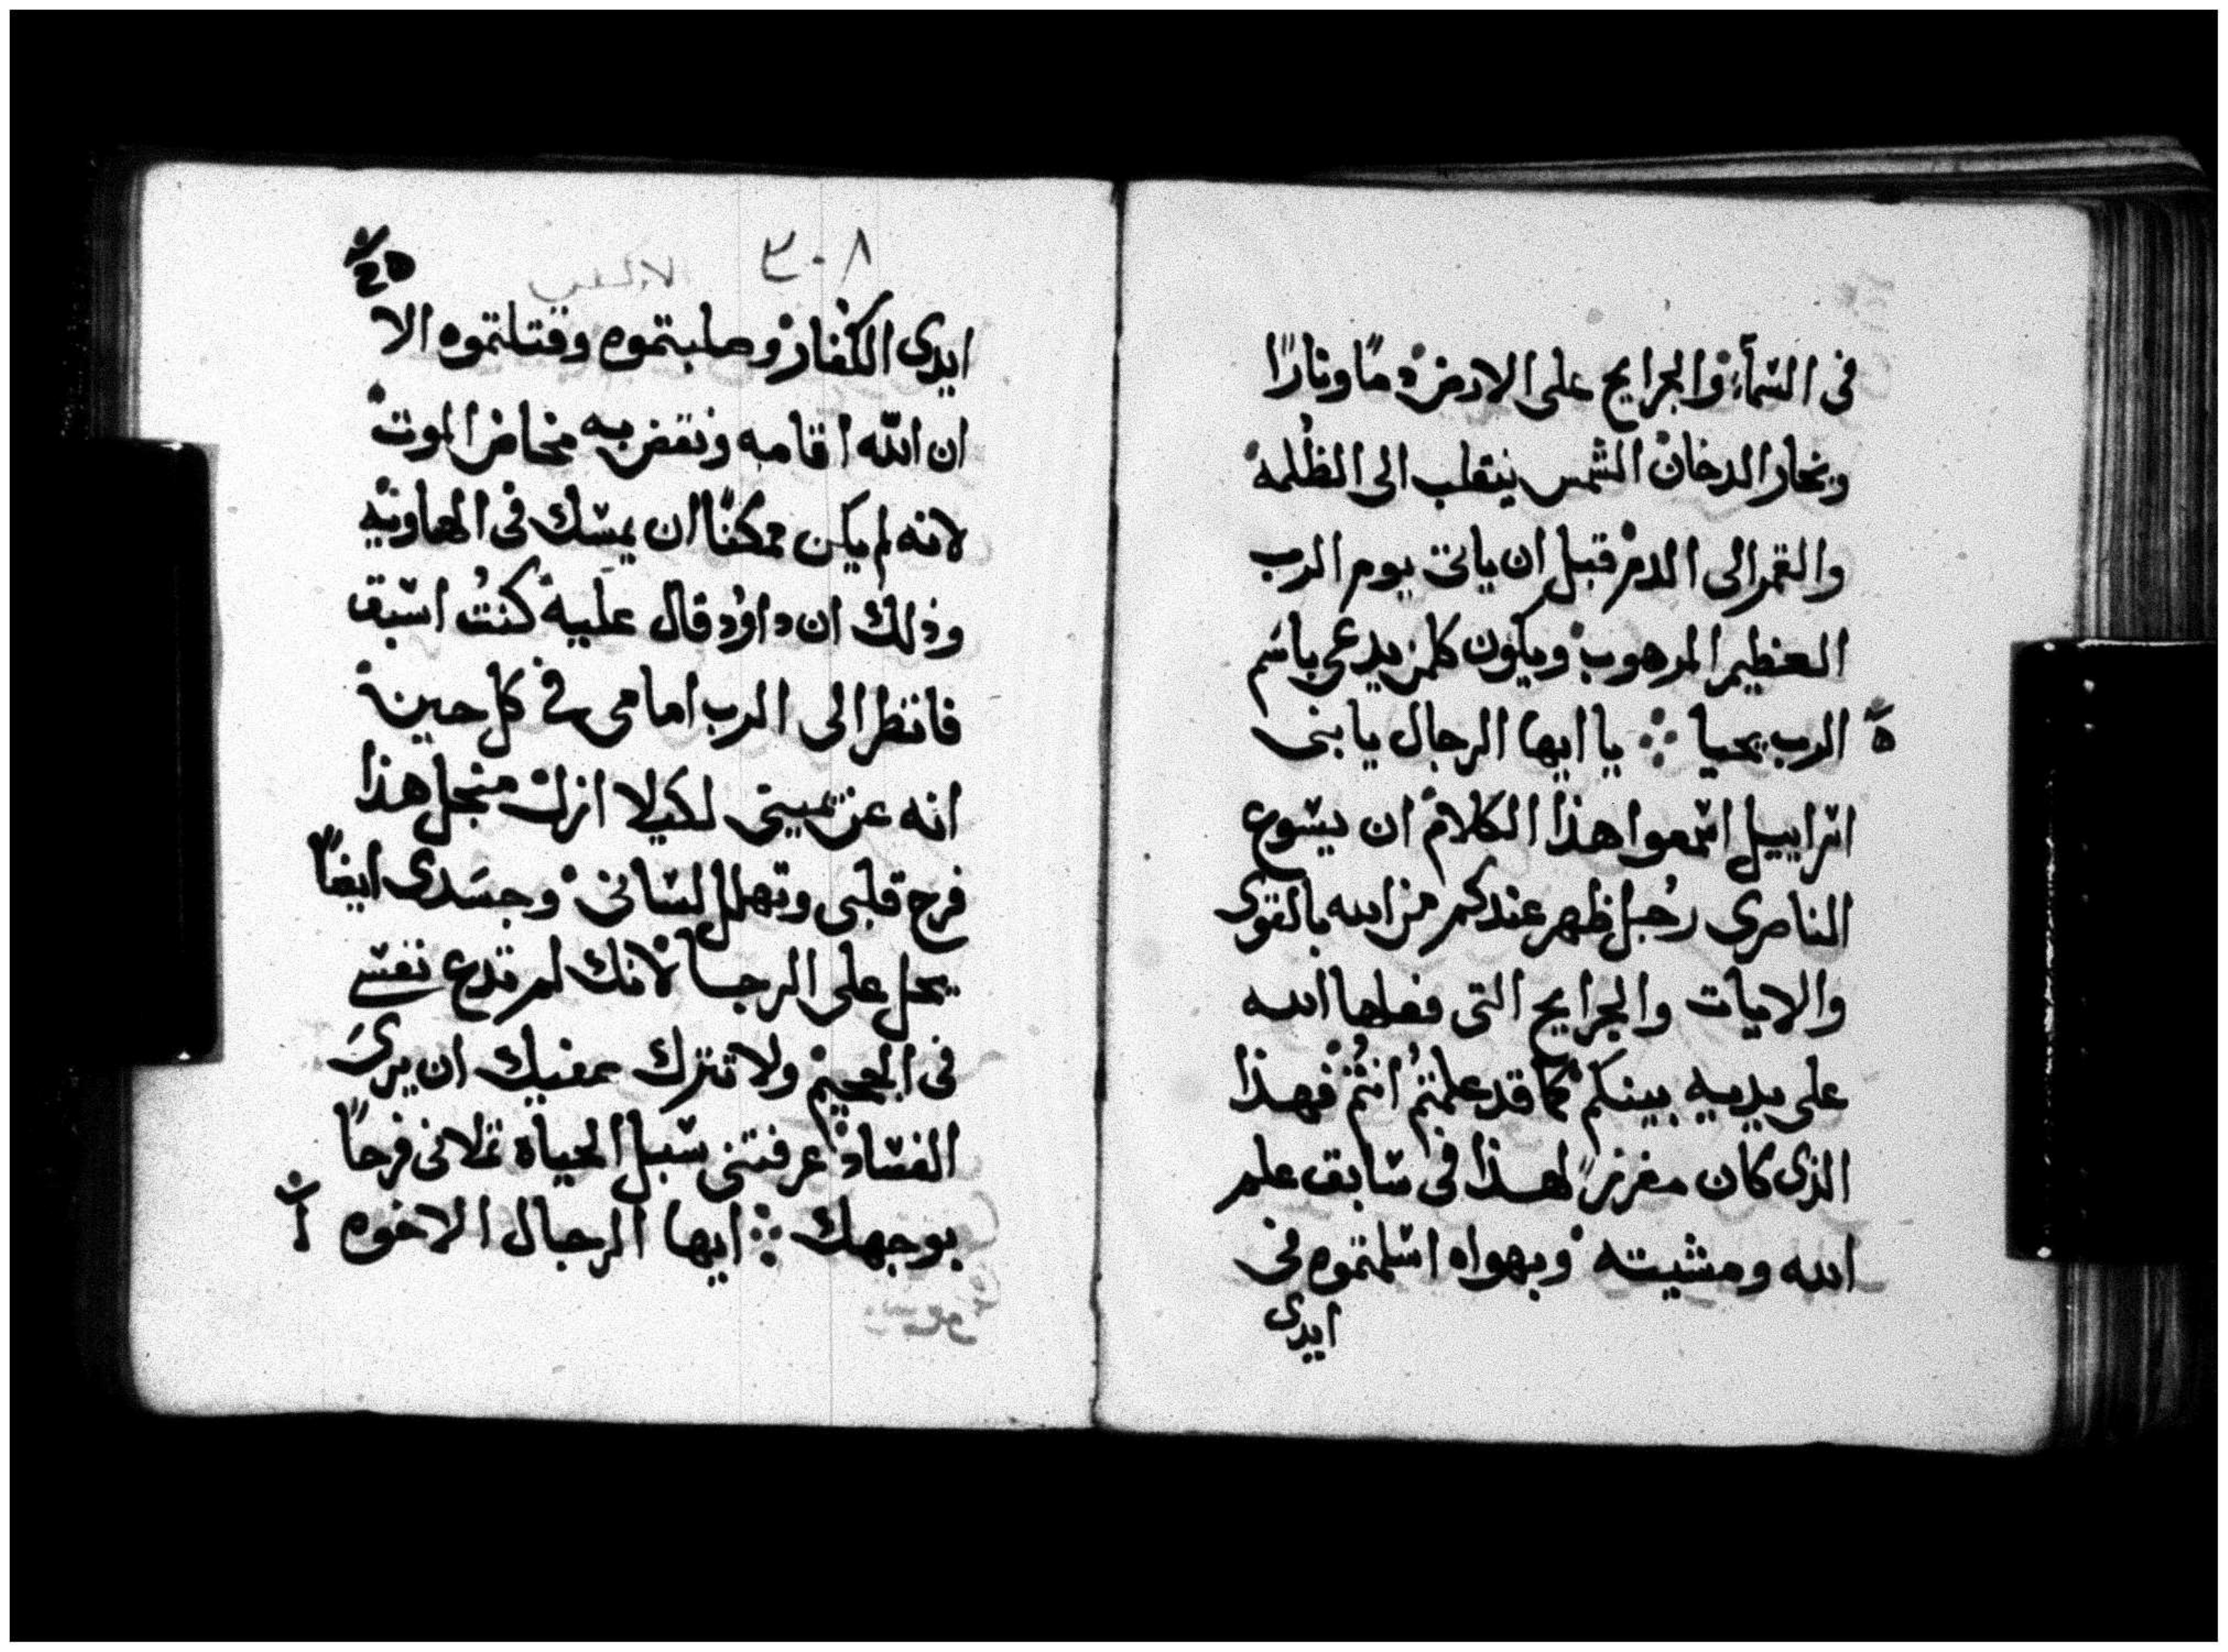 فى السّمآء والجرايح على الارض دمًا ونارًا
وبخار الدخان الشمس ينقلب الى الظلمه
والقمر الى الدم قبل ان ياتى يوم الرب
العظيم المرهوب ويكون كلمن يدعى باسم
الرب يحيا ܀ يا ايها الرجال يا بنى
اسراييل اسمعوا هذا الكلام ان يسوع
الناصرى رجُل ظهر عندكم من الله بالقوى
والايات والجرايح التى فعلها الله
على يديه بينكم كما قد علمتمُ انتُم فهذا
الذى كان مفرزًا لهذا فى سابق علم
الله ومشيته وبهواه اسلمتموه فى
ايدى
٣٠٨
ايدى الكفار وصلبتموه وقتلتموه الا
ان الله اقامه ونقض به مخاض الموت
لانه لم يكن ممكنًا ان يمسك فى الهاويه
وذلك ان داوُد قال عليه كنتُ اسبق
فانظر الى الرب امامى فى كل حين
انه عن يمينى لكيلا ازل منجل هذا
فرح قلبى وتهلل لسانى وجسَدى ايضًا
يحل على الرجا لانك لم تدع نفسى
فى الجحيم ولا تترك صفيك ان يرىَ
الفساد عرفتنى سبل الحياه تملانى فرحًا
بوجهك ܀ ايها الرجال الاخوه